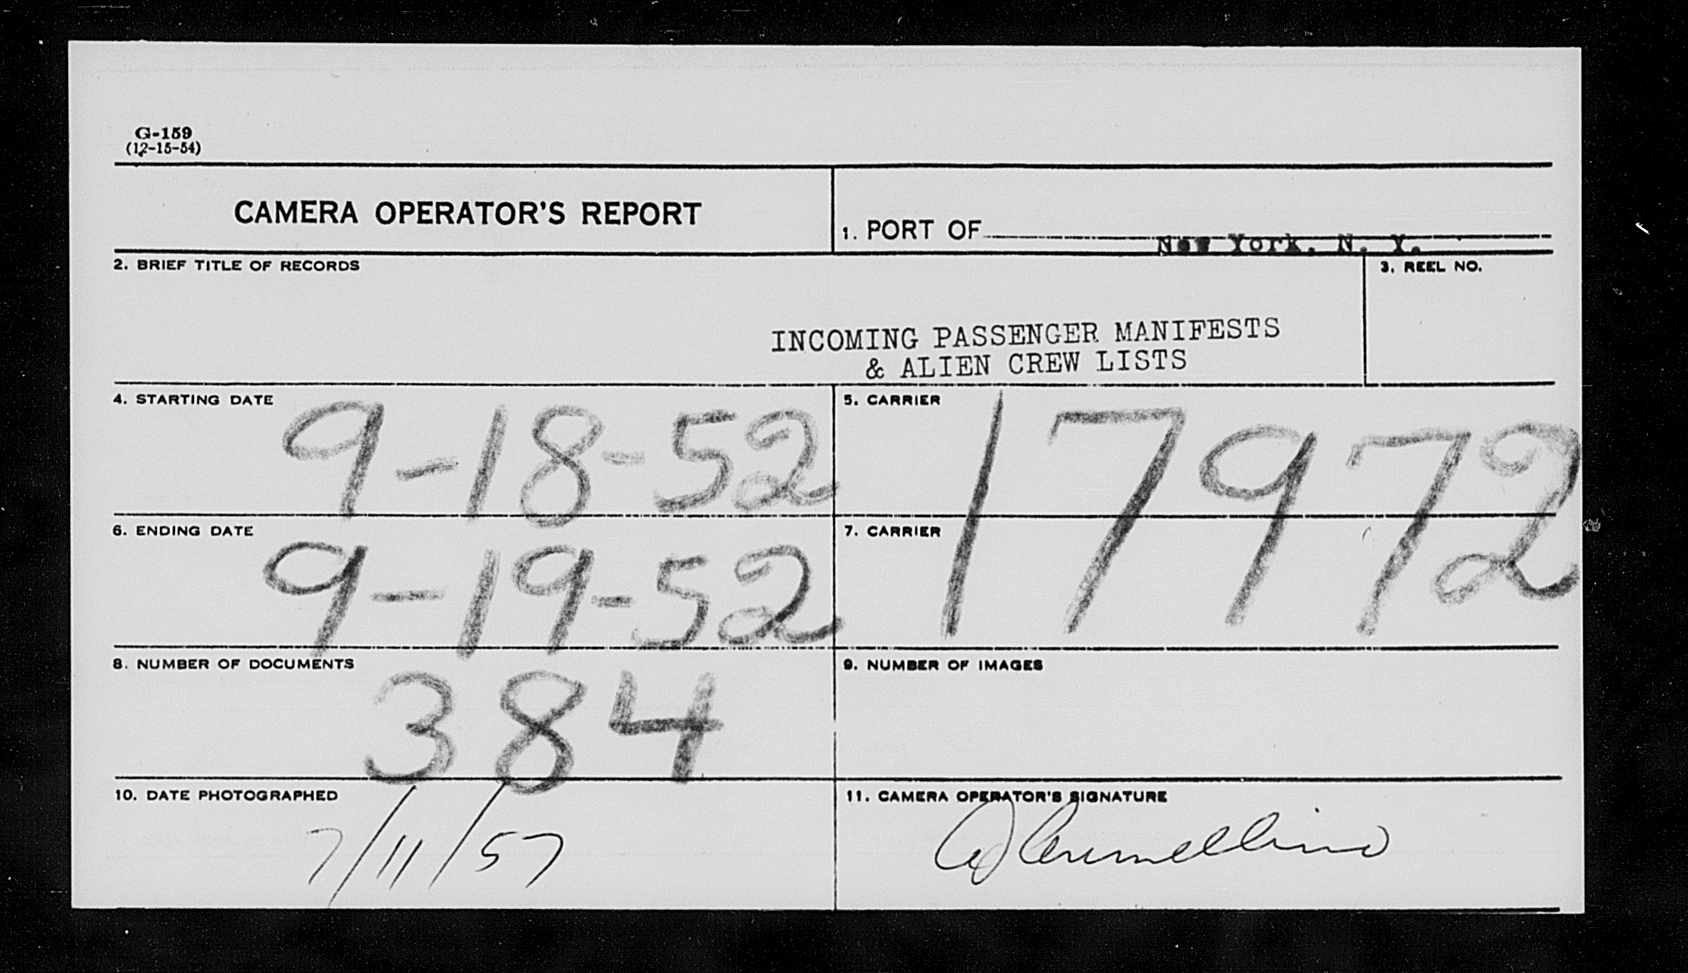 G-159
(12-15-54)
CAMERA OPERATOR'S REPORT
1. PORT OF New York, N. Y.
2. BRIEF TITLE OF RECORDS
3. REEL NO.
INCOMING PASSENGER MANIFESTS
& ALIEN CREW LISTS
4. STARTING DATE
9-18-52
5. CARRIER
17972
6. ENDING DATE
9-19-52
7. CARRIER
8. NUMBER OF DOCUMENTS
384
9. NUMBER OF IMAGES
10. DATE PHOTOGRAPHED
7/11/57
11. CAMERA OPERATOR'S SIGNATURE